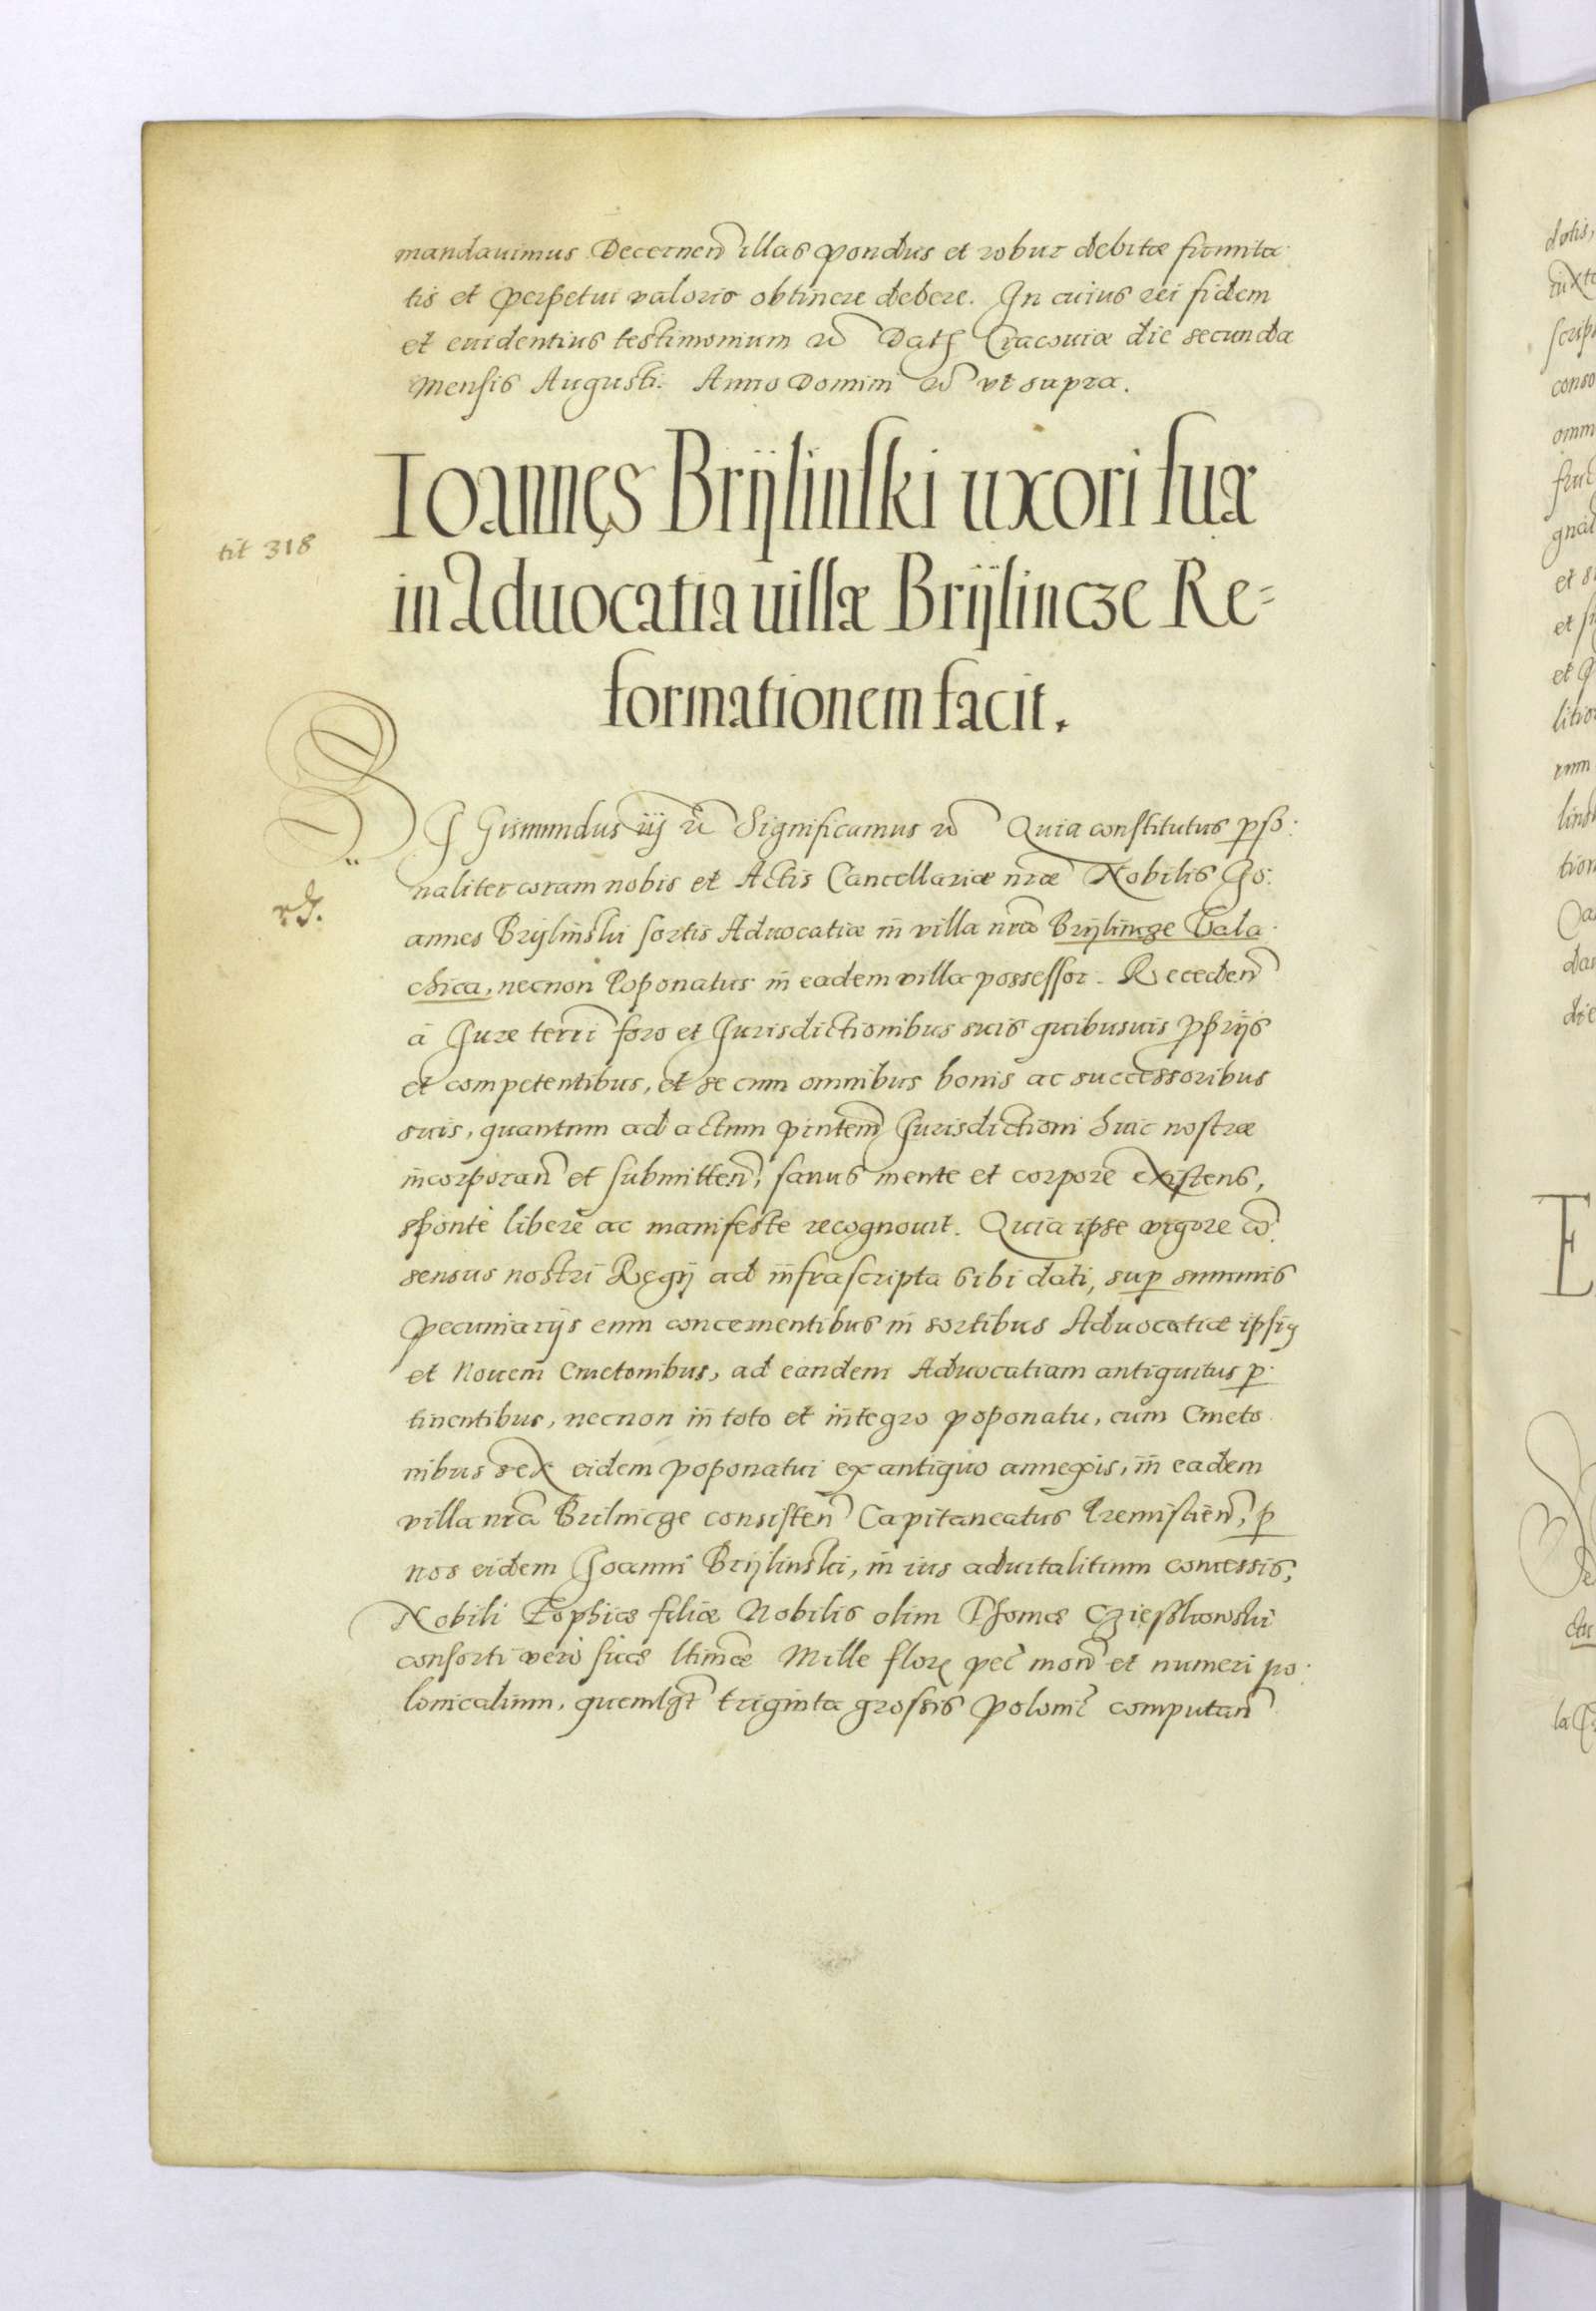 mandauimus Decernen̄ illas pondus et robur debitæ firmita
tis et perpetui valoris obtinere debere. In cuius rei fidem
et euidentius testimonium &c̄ Datꝭ Cracouiæ die secunda
Mensis Augusti. Anno Domini &c̄ vt supra.
Ioannęs Brÿlinſki uxori ſuæ
tit 318
in Aduocatia uillæ Brÿlincze Re=
formationem facit.
SIGismundus iij &c̄ Significamus &c̄ Quia constitutus p̱so:
naliter coram nobis et Actis Cancellariæ nr̄æ Nobilis Jo:
annes Brÿlinski sortis Aduocatiæ in villa nr̄a Brÿlincze Vala
chica, necnon Poponatus in eadem villa possessor. Receden̄
à Jure terri foro et Jurisdictionibus suis quibusuis p̱prijs
et competentibus, et se cum omnibus bonis ac successoribus
suis, quantum ad actum pn̄tem Jurisdictioni huic nostræ
incorporan̄ et submitten̄, sanus mente et corpore existens,
spontè liberè ac manifestè recognouit. Quia ipse vigore cō:
sensus nostri Regij ad infrascripta sibi dati, sup̱ summis
pecuniarijs eum concernentibus in sortibus Aduocatiæ ipsiꝯ
et Nouem Cmetonibus, ad eandem Aduocatiam antiquitus p̱
tinentibus, necnon in toto et integro poponatu, cum Cmeto
nibus sex eidem poponatui ex antiquo annexis, in eadem
villa nr̄a Brilincze consisten̄ Capitaneatus Premislien̄, p̱
nos eidem Joanni Brÿlinski, in ius aduitalitium concessis,
Nobili Zophiæ filiæ Nobilis olim Thomæ Czieszkowski
consorti verò suæ ltīmæ Mille florꝭ pec̄ mon̄ et numeri po:
lonicalium, quemlꝫt triginta grossis polonic̄ computan̄